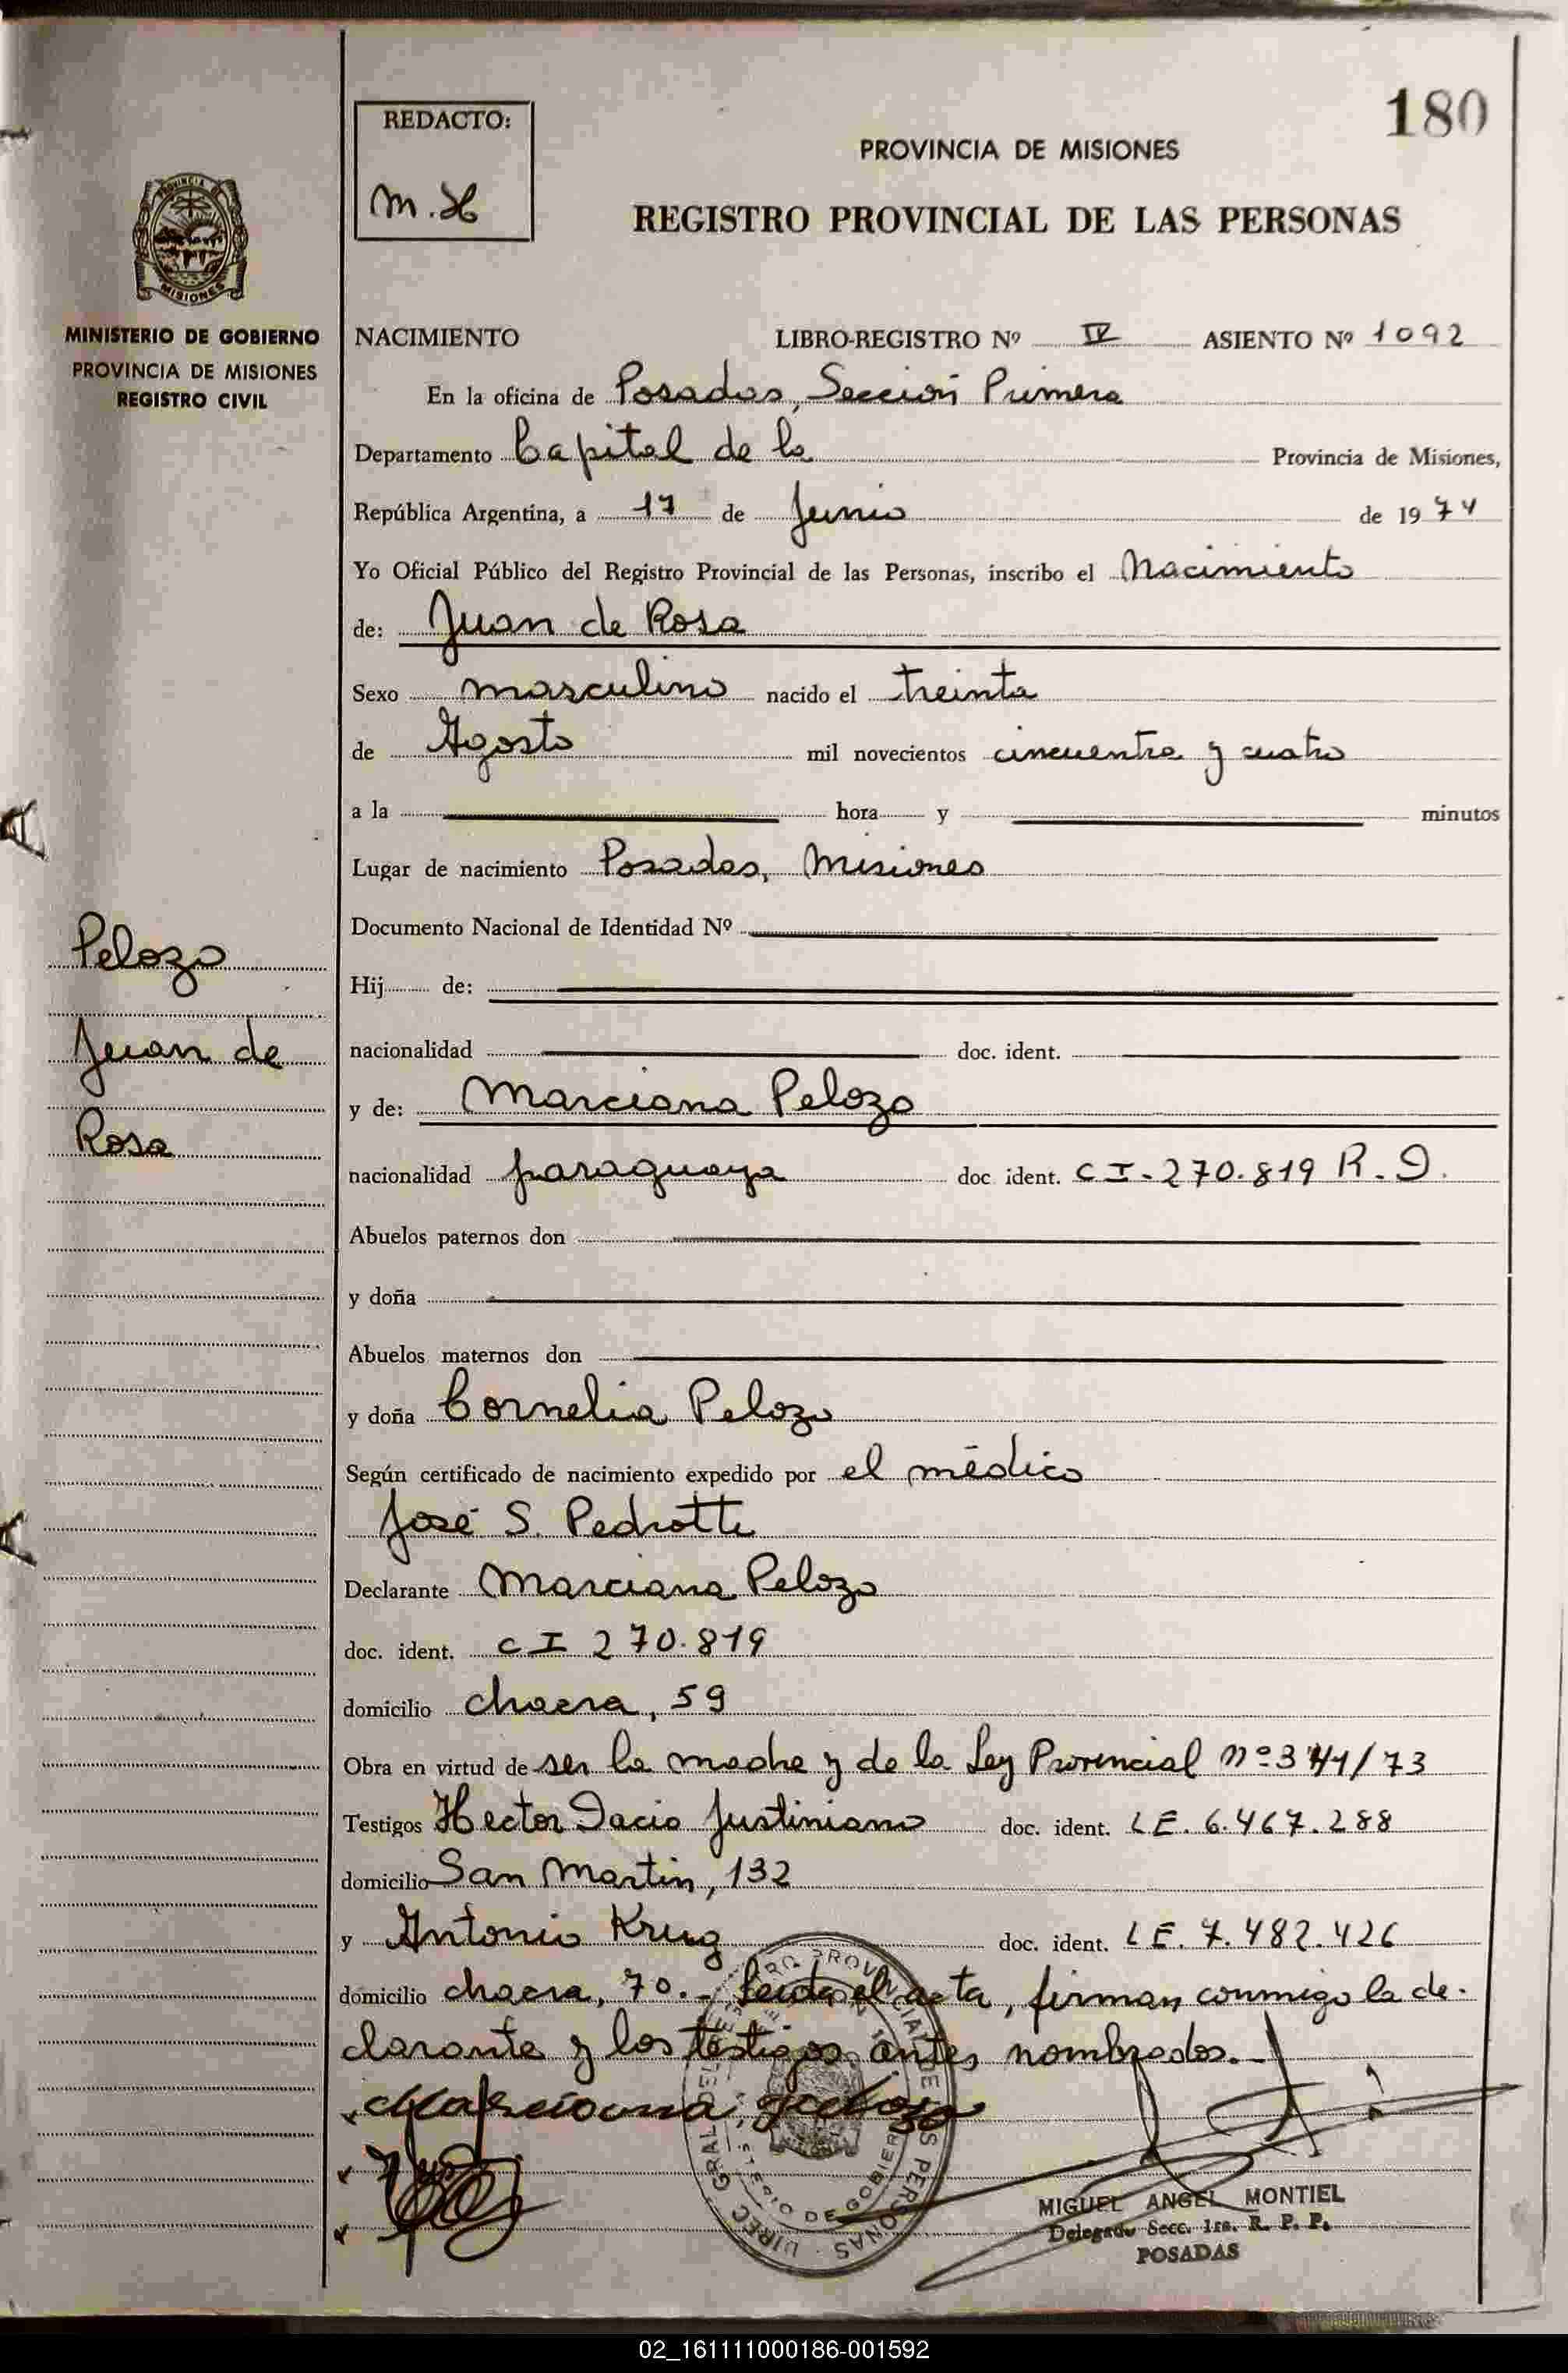 180
REDACTO:
M.H
PROVINCIA DE MISIONES
REGISTRO PROVINCIAL DE LAS PERSONAS
PROVINCIA DE
MISIONES
MINISTERIO DE GOBIERNO
PROVINCIA DE MISIONES
REGISTRO CIVIL
NACIMIENTO LIBRO-REGISTRO Nº IV ASIENTO Nº 1092
En la oficina de Posadas, Sección Primera
Departamento Capital de la Provincia de Misiones,
República Argentina, a 17 de Junio de 1974
Yo Oficial Público del Registro Provincial de las Personas, inscribo el Nacimiento
de: Juan de Rosa
Sexo masculino nacido el treinta
de Agosto mil novecientos cincuenta y cuatro
a la hora y minutos
Lugar de nacimiento Posadas, Misiones
Documento Nacional de Identidad Nº
Pelozo
Juan de
Rosa
Hij de:
nacionalidad doc. ident.
y de: Marciana Pelozo
nacionalidad paraguaya doc ident. CI-270.819 R.D.
Abuelos paternos don
y doña
Abuelos maternos don
y doña Cornelia Pelozo
Según certificado de nacimiento expedido por el médico
José S. Pedrotti
Declarante Marciana Pelozo
doc. ident. CI 270.819
domicilio chacra, 59
Obra en virtud de ser la madre y de la Ley Provincial nº /73
Testigos Hector Dacio Justiniano doc. ident. LE. 6.467.288
domicilio San Martin, 132
y Antonio Krug doc. ident. LE. 7.482.426
domicilio chacra, 70.- Leida el acta, firman conmigo la de-
clarante y los testigos antes nombrados.-
Marciana Pelozo
MIGUEL ANGEL MONTIEL
Delegado Secc. 1ra. R. P. P.
POSADAS
02_161111000186-001592